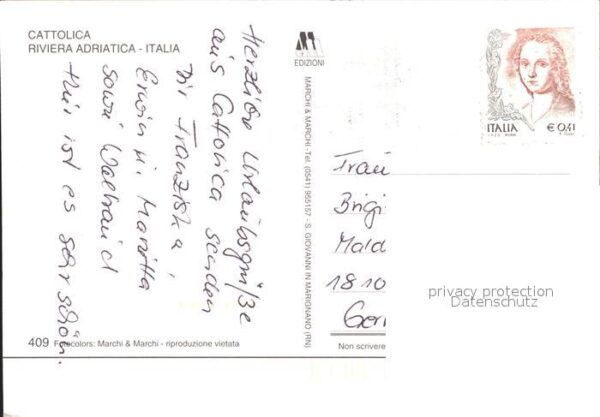 CATTOLICA
RIVIERA ADRIATICA - ITALIA
Herzliche Urlaubsgrüße
aus Cattolica senden
Dir Franziska,
Erwin u. Marietta
sowie Waltraud
Hier ist es sehr schön.
409 Fotocolors: Marchi & Marchi - riproduzione vietata
EDIZIONI
MARCHI & MARCHI - Tel. (0541) 955157 - S. GIOVANNI IN MARIGNANO (RN)
ITALIA € 0,41
Frau
Brigi
Mald
1810
Ger
Non scrivere
privacy protection
Datenschutz